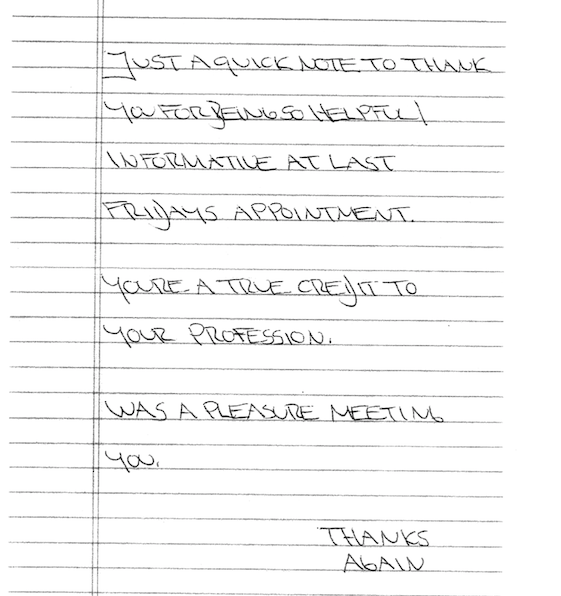 JUST A QUICK NOTE TO THANK
YOU FOR BEING SO HELPFUL/
INFORMATIVE AT LAST
FRIDAYS APPOINTMENT.
YOURE A TRUE CREDIT TO
YOUR PROFESSION.
WAS A PLEASURE MEETING
YOU.
THANKS
AGAIN